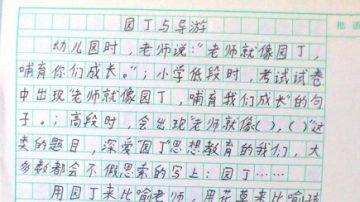 批
园丁与导游
幼儿园时，老师说：“老师就像园丁，
哺育你们成长。”；小学低段时，考试试卷
中出现“老师就像园丁，哺育我们成长”的句
子。；高段时，会出现“老师就像( ),( )”这
类的题目，深爱“园丁”思想教育的我们，大
多数都会不假思索的写上：园丁……
用园丁来比喻老师，用花草来比喻孩